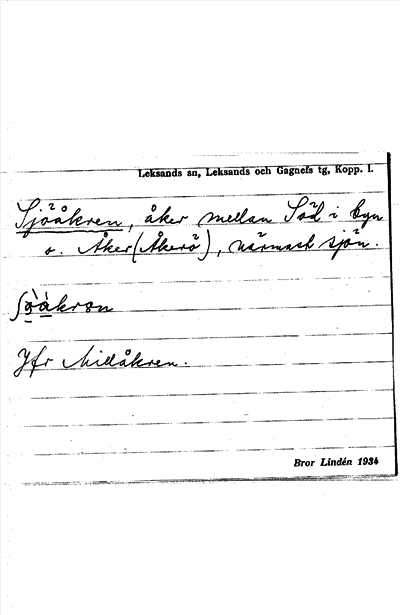 Leksands sn, Leksands och Gagnefs tg, Kopp. l.
Sjöåkren, åker mellan Söd i byn
o. Åker (Åkerö), närmast sjön.
Jfr Millåkren.
Bror Lindén 1934